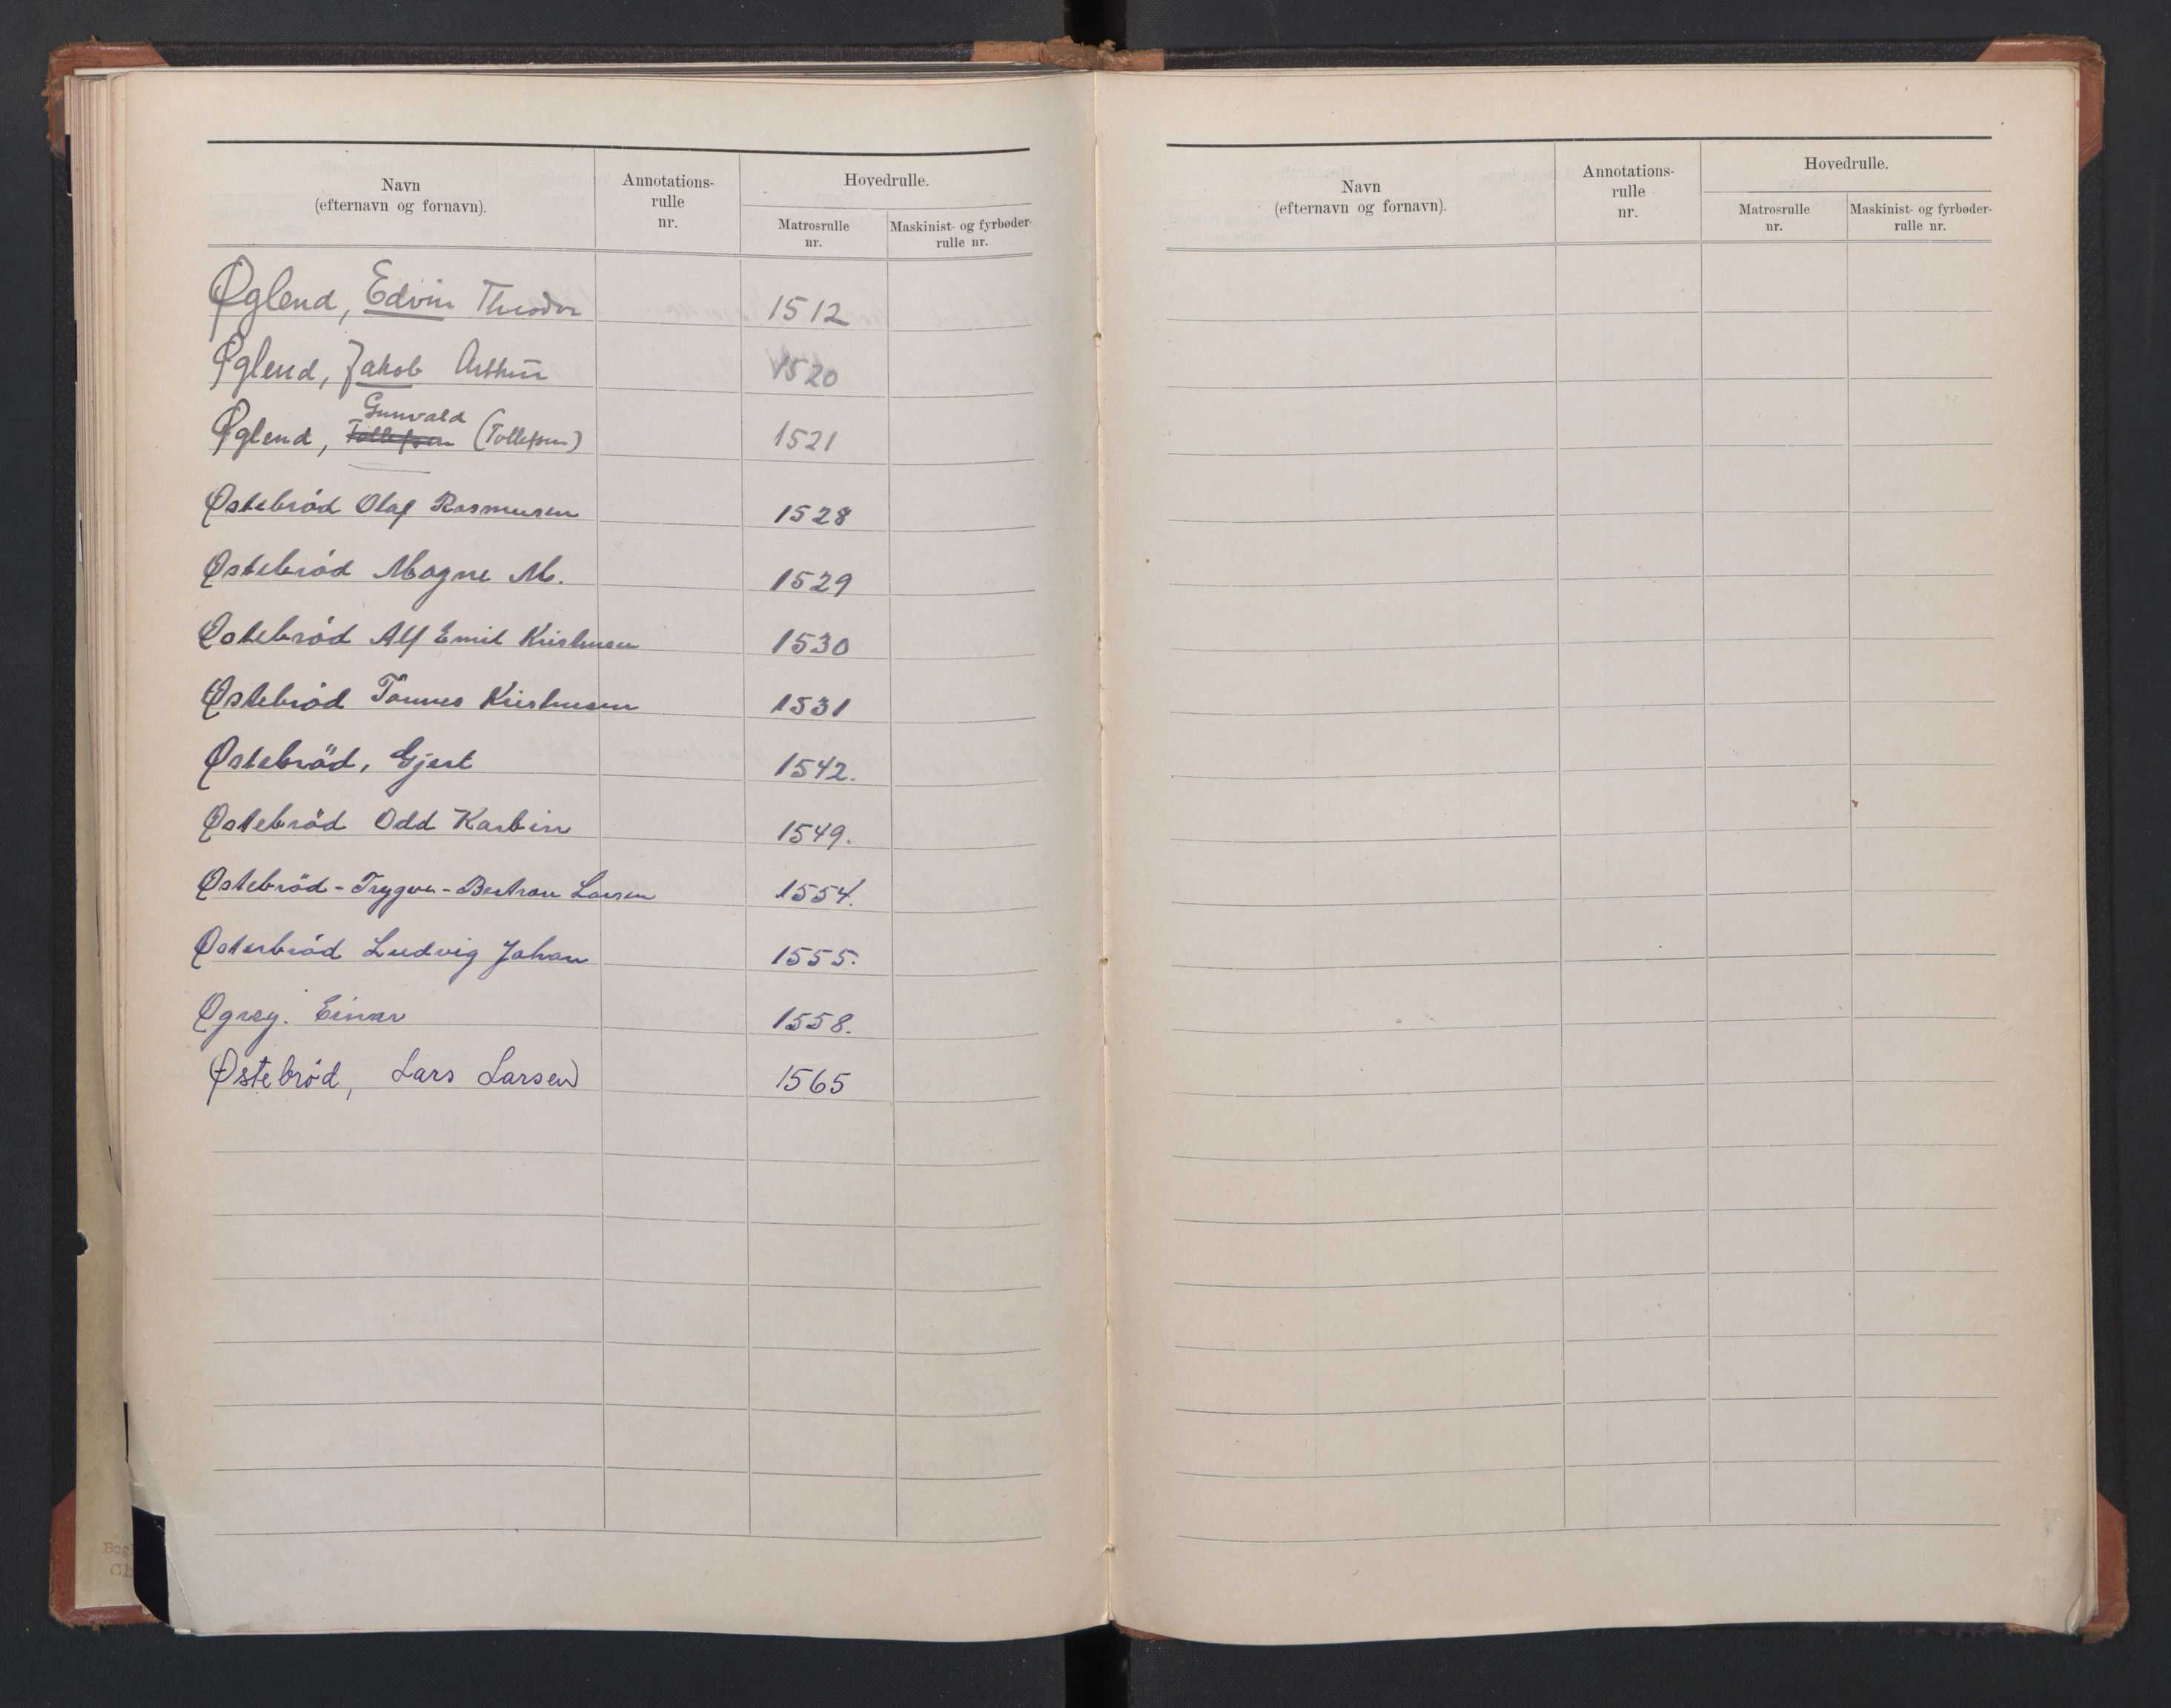 Navn
(efternavn og fornavn).
Annotations-
rulle
nr.
Hovedrulle.
Matrosrulle
nr.
Maskinist- og fyrbøder-
rulle nr.
Øglend, Edvin Theodor 1512
Øglend, Jakob Arthur 1520
Gunvald
Øglend, Tollefsen (Tollefsen) 1521
Østebröd Olaf Rasmusen 1528
Østebröd Magne M. 1529
Østebröd Alf Emil Kristensen 1530
Østebröd Tönnes Kristensen 1531
Østebröd, Gjert 1542.
Østebröd Odd Karbin 1549.
Østebröd - Trygve - Bertran Larsen 1554.
Østerbröd Ludvig Johan 1555.
Øgrey. Einar 1558.
Østebröd, Lars Larsen 1565
Navn
(efternavn og fornavn).
Annotations-
rulle
nr.
Hovedrulle.
Matrosrulle
nr.
Maskinist- og fyrbøder-
rulle nr.